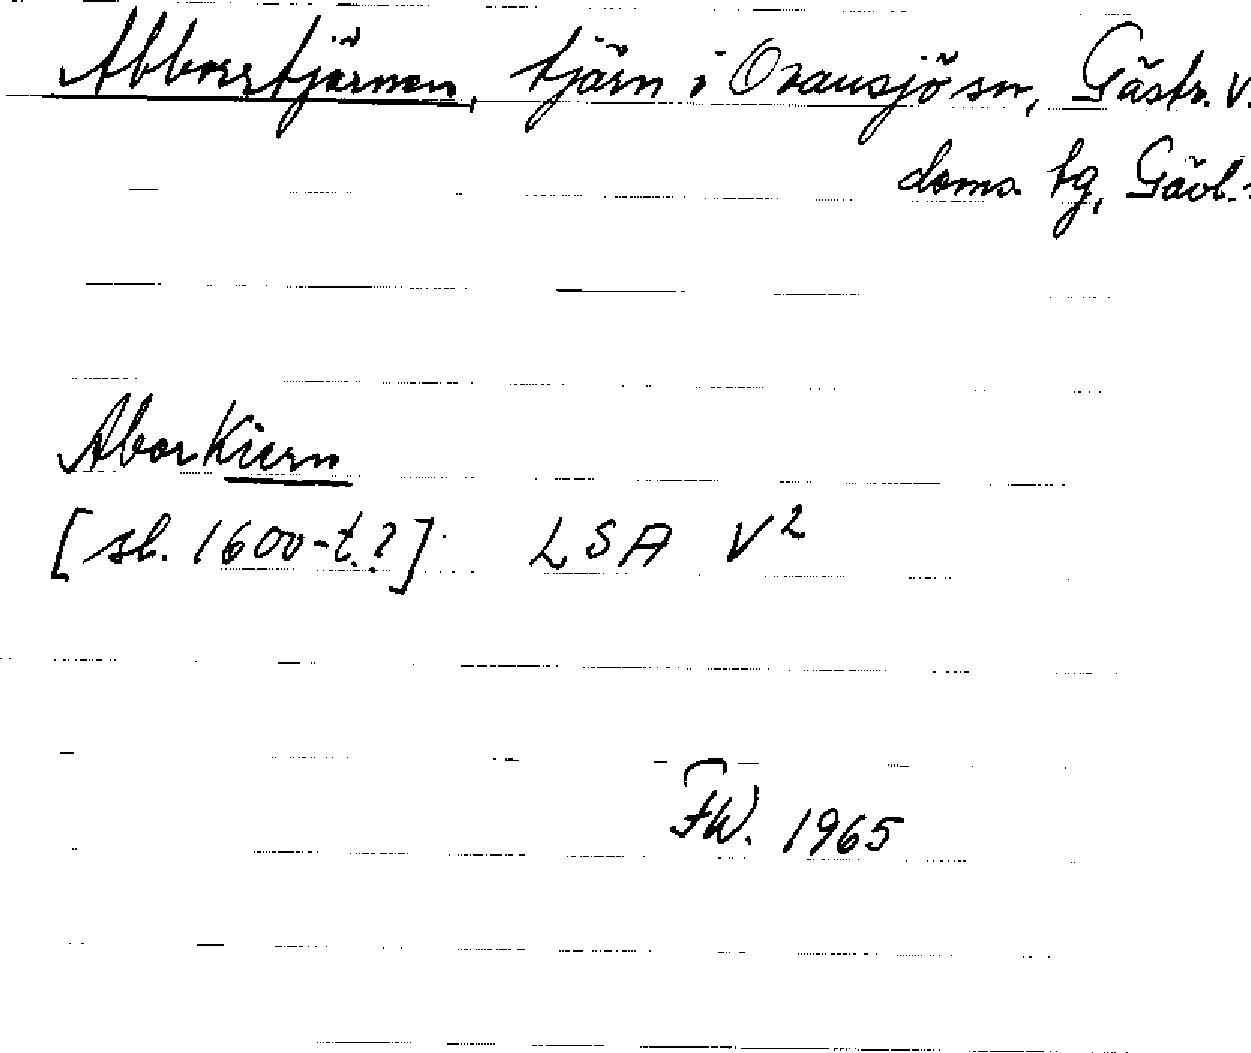 Abborrtjärnen, tjärn i Ovansjö sn, Gästr. v.
doms. tg, Gävl.
AborKiern
[sl. 1600-t.?] LSA V²
FW. 1965